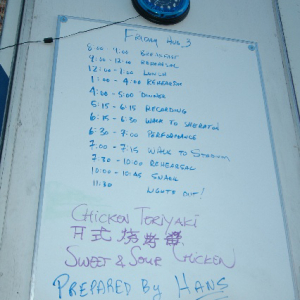 FRIDAY AUG. 3
8:00 - 9:00 BREAKFAST
9:00 - 12:00 REHEARSAL
12:00 - 1:00 LUNCH
1:00 - 4:00 REHEARSAL
4:00 - 5:00 DINNER
5:15 - 6:15 RECORDING
6:15 - 6:30 WALK TO SHERATON
6:30 - 7:00 PERFORMANCE
7:00 - 7:15 WALK TO STADIUM
7:30 - 10:00 REHEARSAL
10:00 - 10:45 SNACK
11:30 LIGHTS OUT!
CHICKEN TERIYAKI
日式烧烤
SWEET & SOUR CHICKEN
PREPARED BY HANS